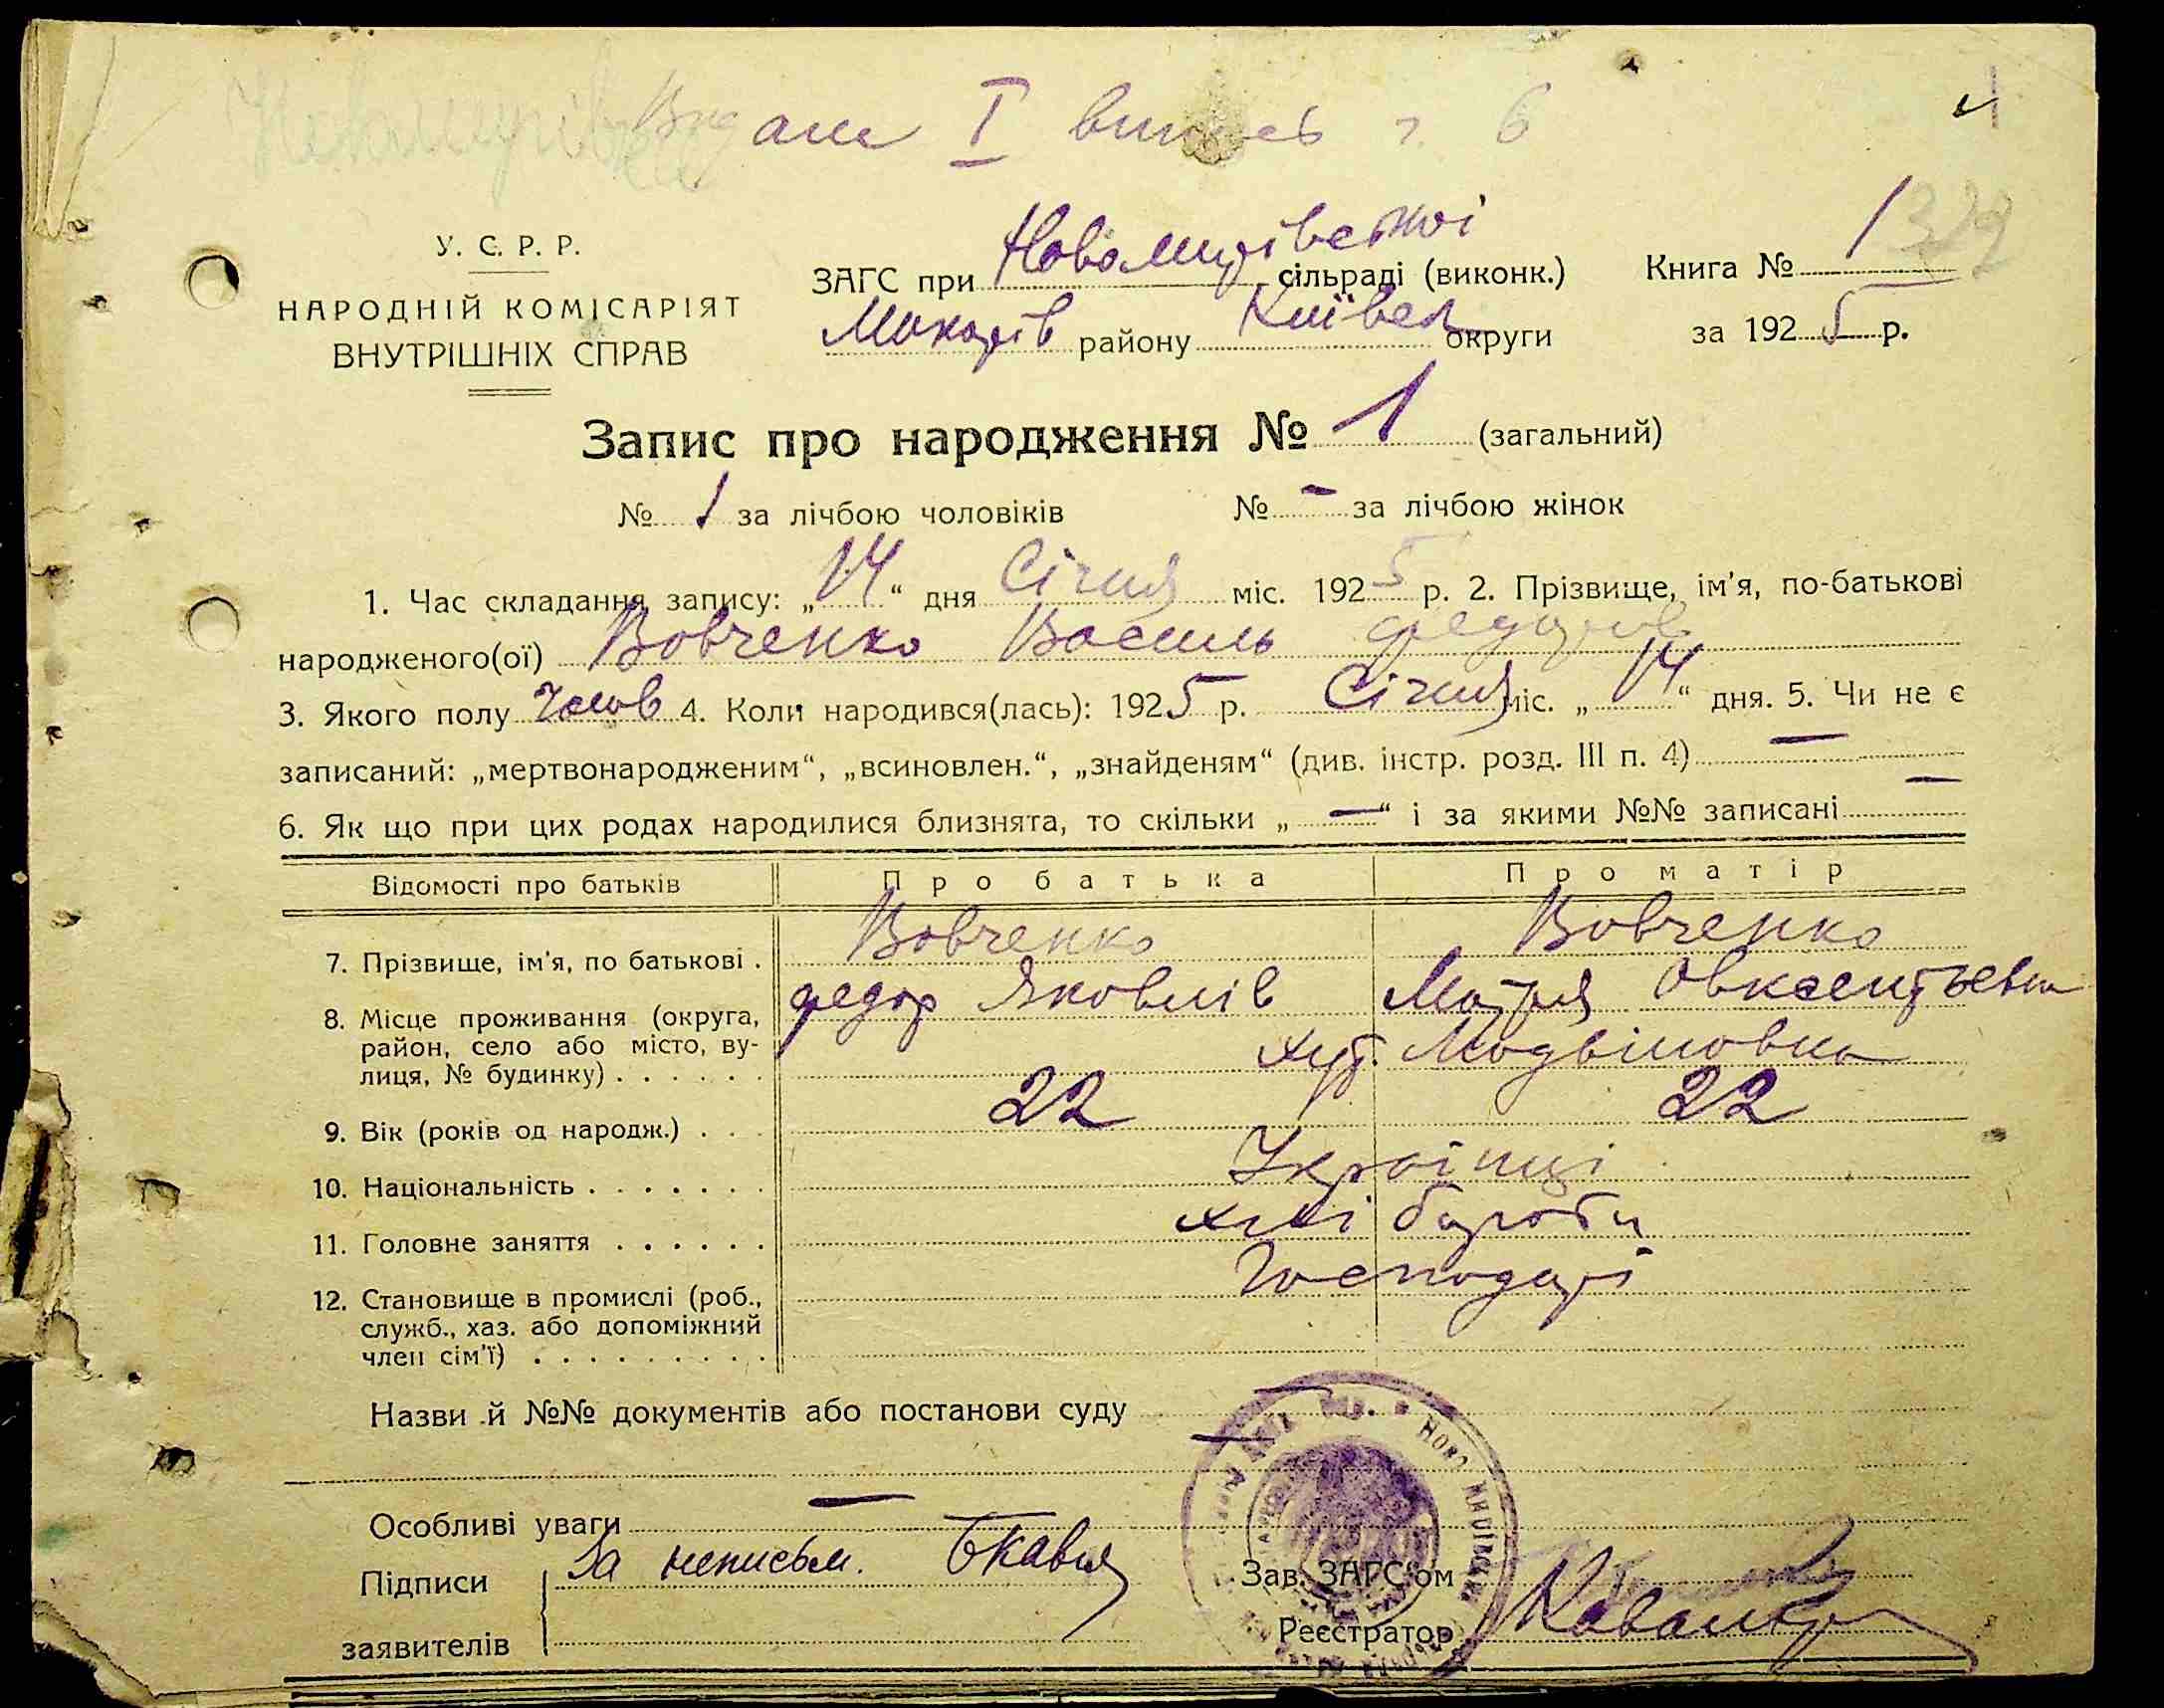 Видане І випись 6
4
329
У. С. Р. Р.
НАРОДНІЙ КОМІСАРІЯТ
ВНУТРІШНІХ СПРАВ
ЗАГС при сільраді (виконк.) Книга № 1
Макарів району Київськ округи за 1925 р.
Запис про народження № 1 (загальний)
№ 1 за лічбою чоловіків № – за лічбою жінок
1. Час складання запису: „14“ дня Січня міс. 1925 р. 2. Прізвище, ім'я, по-батькові
народженого(ої) Вовченко Василь Федоров
3. Якого полу Чолов 4. Коли народився(лась): 1925 р. Січня міс. „14“ дня. 5. Чи не є
записаний: „мертвонародженим“, „всиновлен.“, „знайденям“ (див. інстр. розд. III п. 4) –
6. Як що при цих родах народилися близнята, то скільки „–“ і за якими №№ записані –
Відомості про батьків Про батька Про матір
7. Прізвище, ім'я, по батькові . Вовченко Вовченко
Федор Яковлів Мотря
8. Місце проживання (округа, район, село або місто, вулиця, № будинку) . . . . . . хут.
9. Вік (років од народж.) . . . 22 22
10. Національність . . . . . . . Українці
11. Головне заняття . . . . . . хліборобы
12. Становище в промислі (роб., служб., хаз. або допоміжний член сім'ї) . . . . . . . . . Господарі
Назви й №№ документів або постанови суду –
Особливі уваги –
Підписи За неписьм.
Зав. ЗАГС'ом
заявителів
Реєстратор